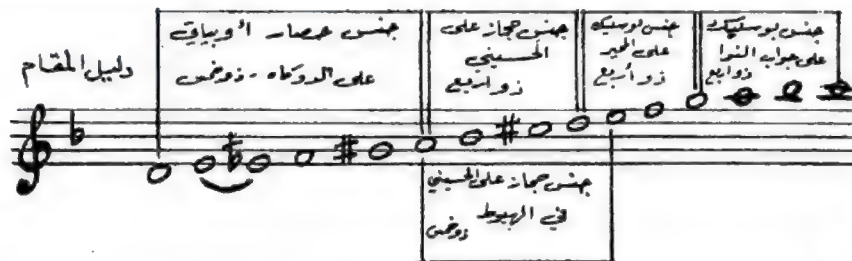 دليل المقام
جنس حصار أو بياتي
على الدوكاه - ذو خمس
جنس حجاز على
الحسيني
ذو اربع
جنس بوسليك
على المحير
ذو أربع
جنس بوسليك
على جواب النوا
ذو اربع
جنس حجاز على الحسيني
في الهبوط
ذو خمس